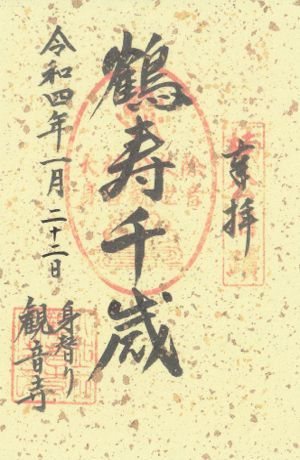 奉拝
鶴寿千歳
令和四年一月二十二日
身替り
観音寺